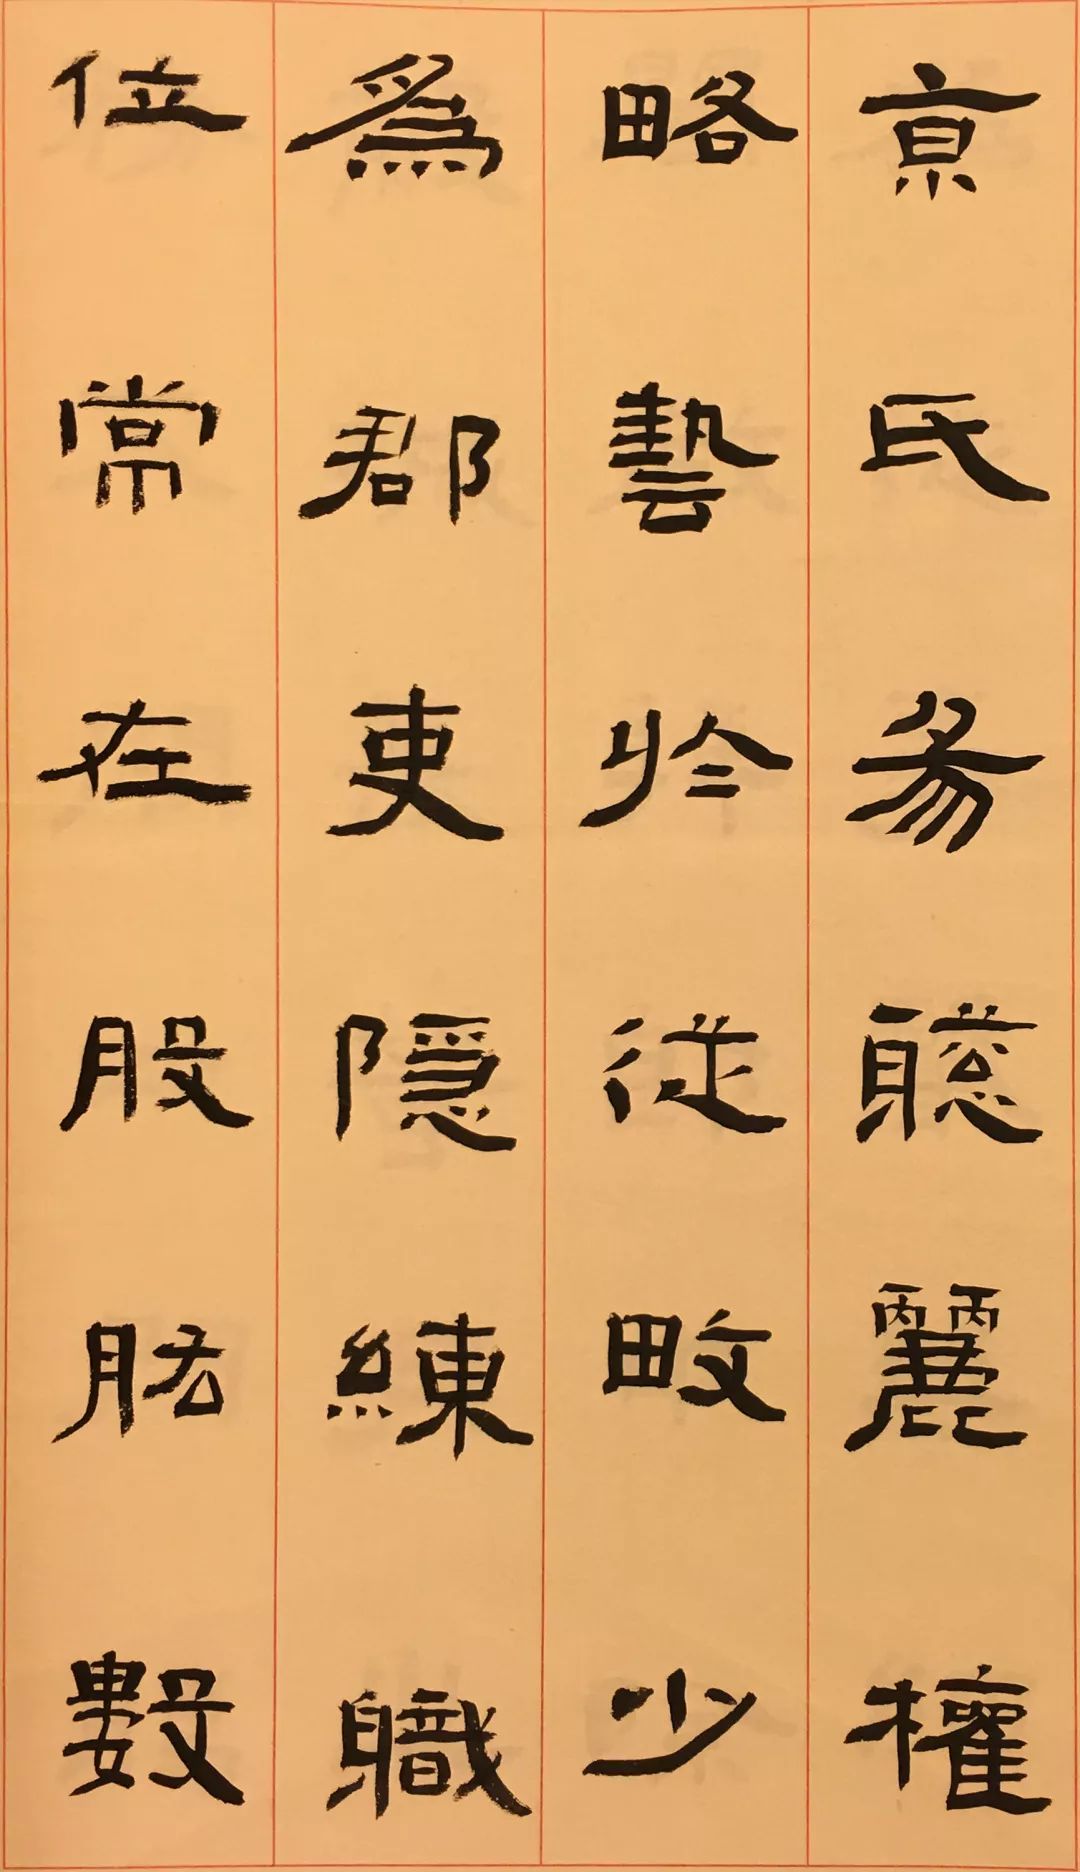 京氏易聰麗權
略藝於從畋少
爲郡吏隱練職
位常在股肱數